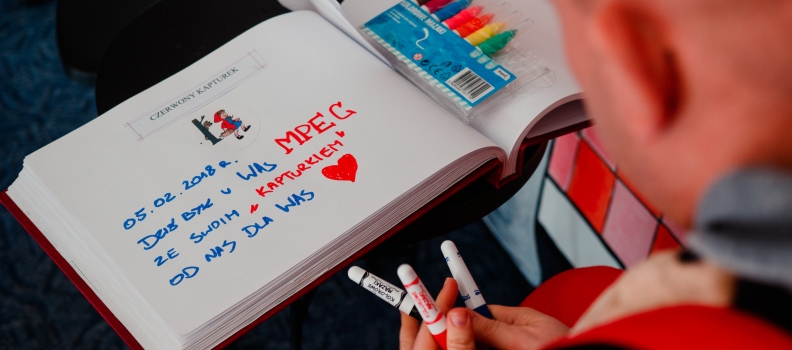 CZERWONY KAPTUREK
05.02.2018 r.
DZIŚ BYŁ U WAS MPEC
ZE SWOIM "KAPTURKIEM"
OD NAS DLA WAS
KOLOROWE
MAZAKI